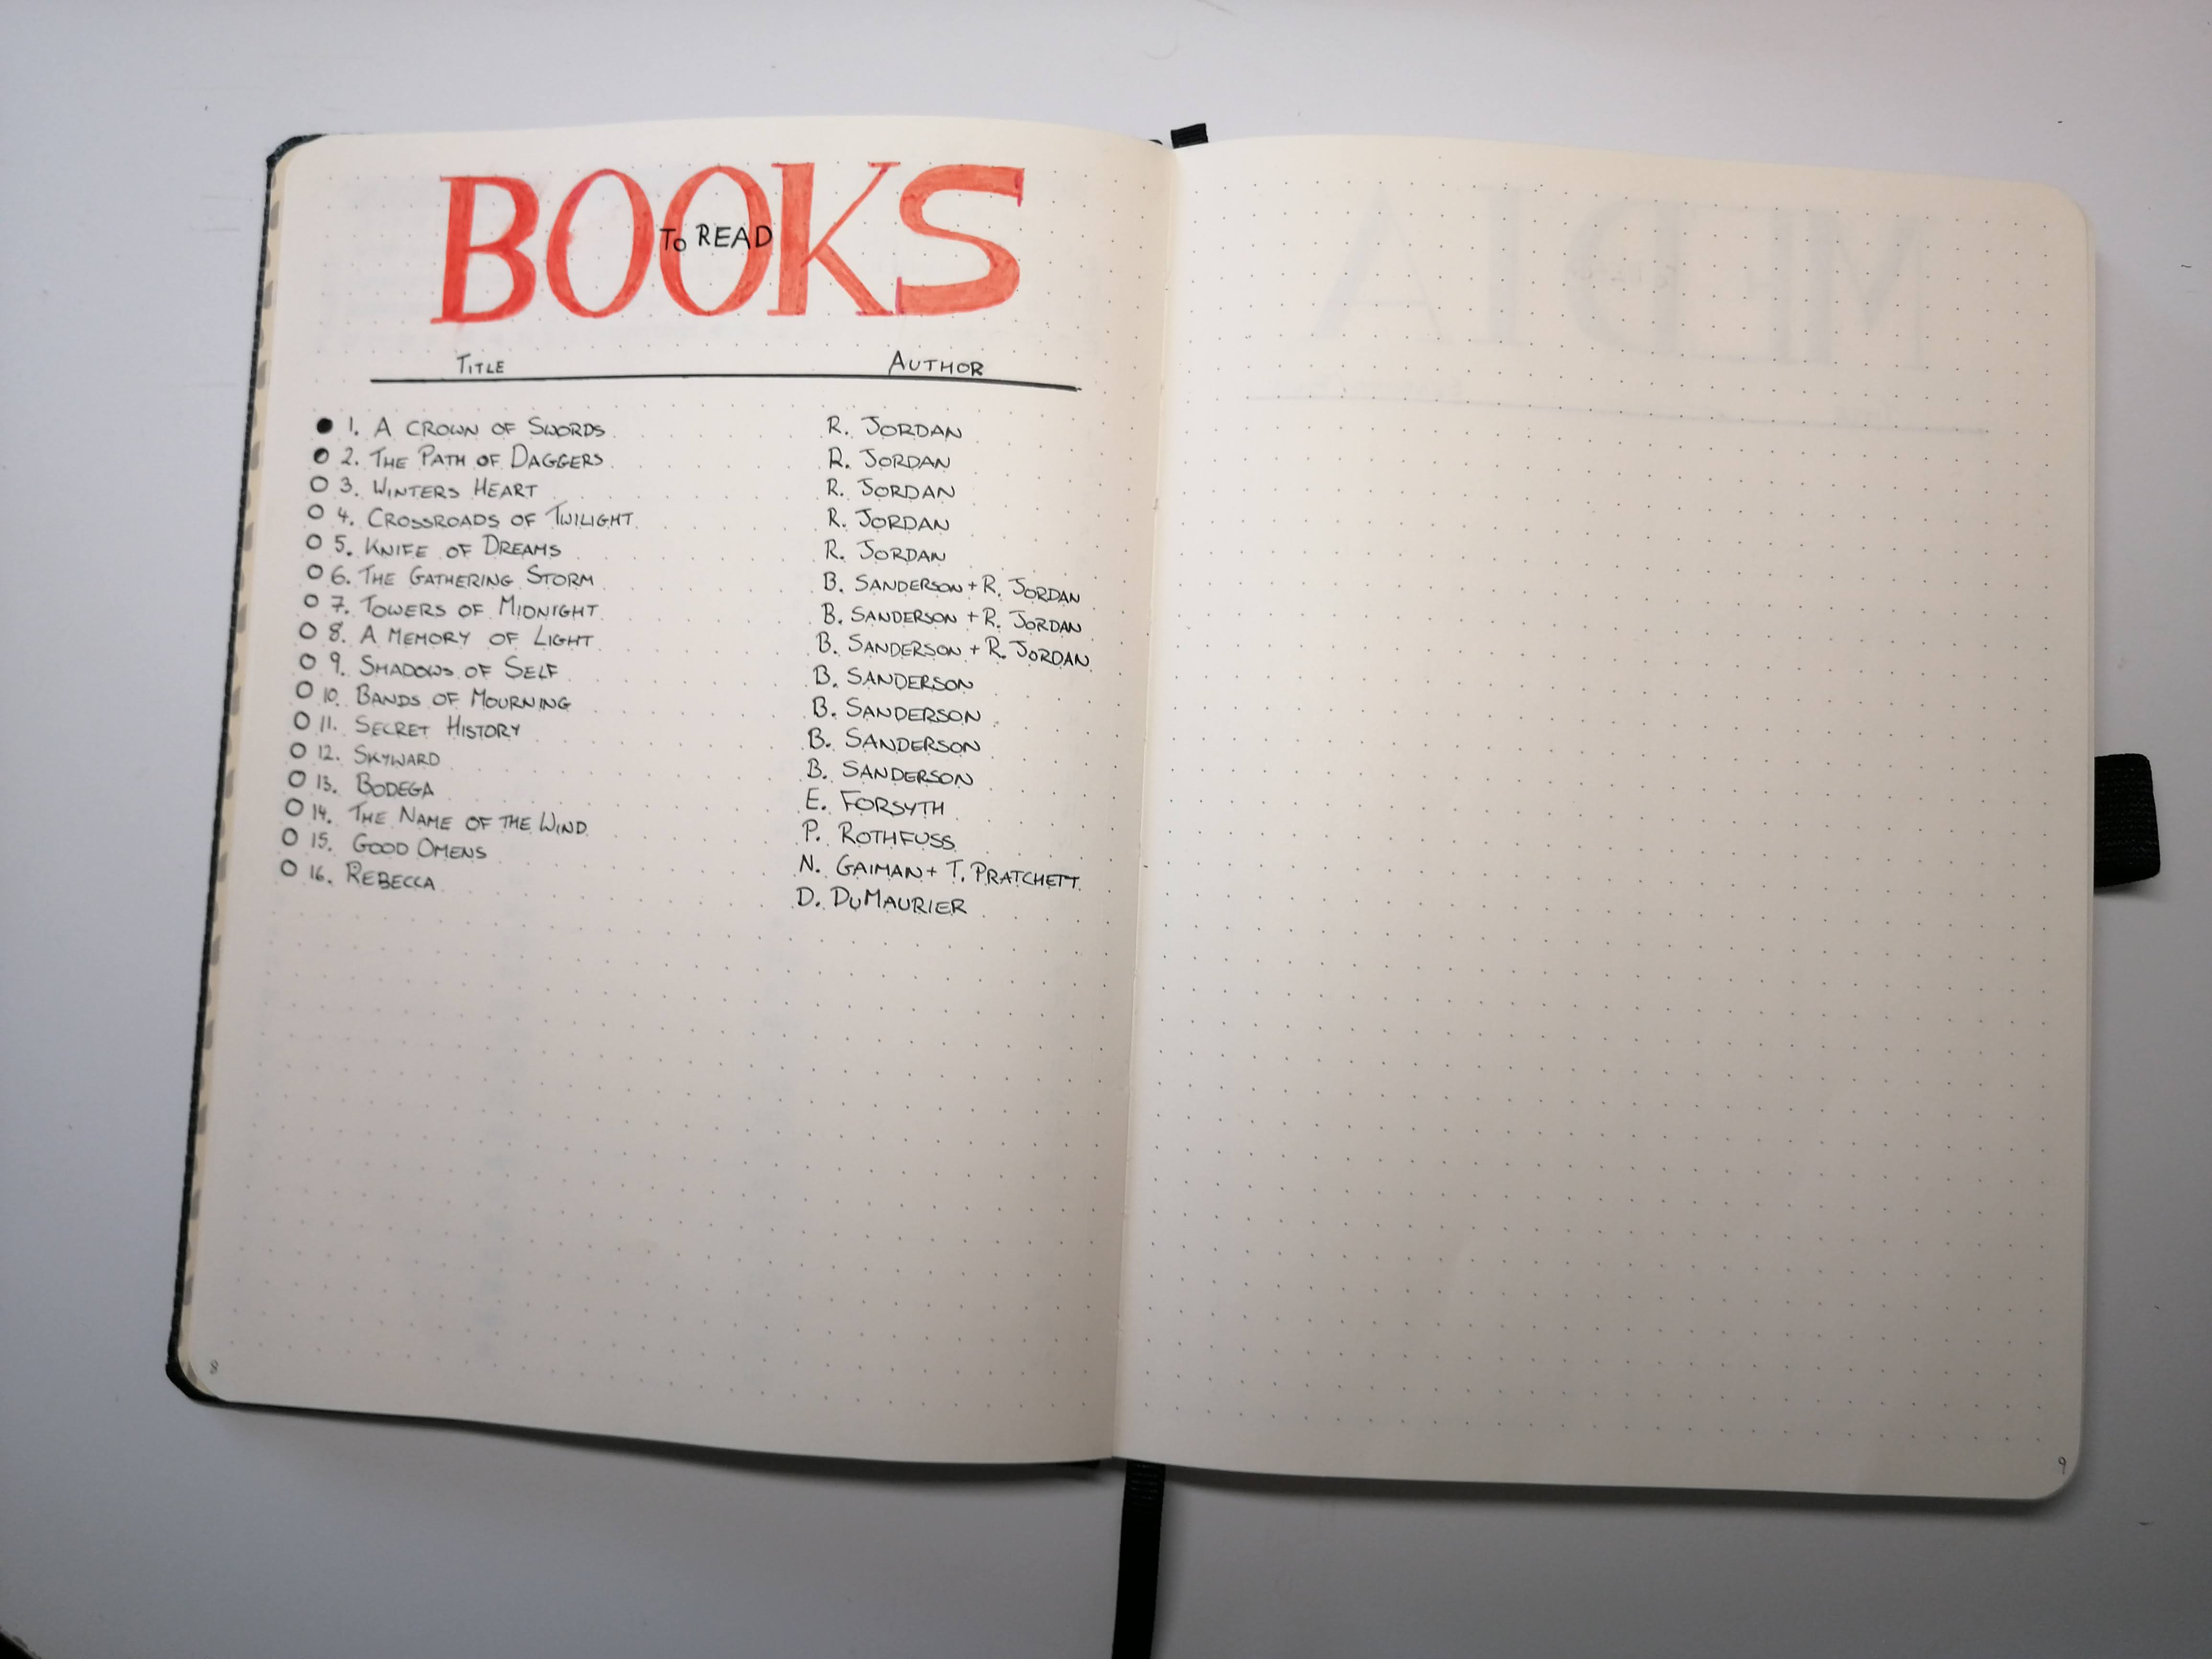 BOOKS
TO READ
TITLE AUTHOR
1. A CROWN OF SWORDS R. JORDAN
2. THE PATH OF DAGGERS R. JORDAN
3. WINTERS HEART R. JORDAN
4. CROSSROADS OF TWILIGHT R. JORDAN
5. KNIFE OF DREAMS R. JORDAN
6. THE GATHERING STORM B. SANDERSON + R. JORDAN
7. TOWERS OF MIDNIGHT B. SANDERSON + R. JORDAN
8. A MEMORY OF LIGHT B. SANDERSON + R. JORDAN
9. SHADOWS OF SELF B. SANDERSON
10. BANDS OF MOURNING B. SANDERSON
11. SECRET HISTORY B. SANDERSON
12. SKYWARD B. SANDERSON
13. BODEGA E. FORSYTH
14. THE NAME OF THE WIND P. ROTHFUSS
15. GOOD OMENS N. GAIMAN + T. PRATCHETT
16. REBECCA D. DUMAURIER
8
MEDIA
9